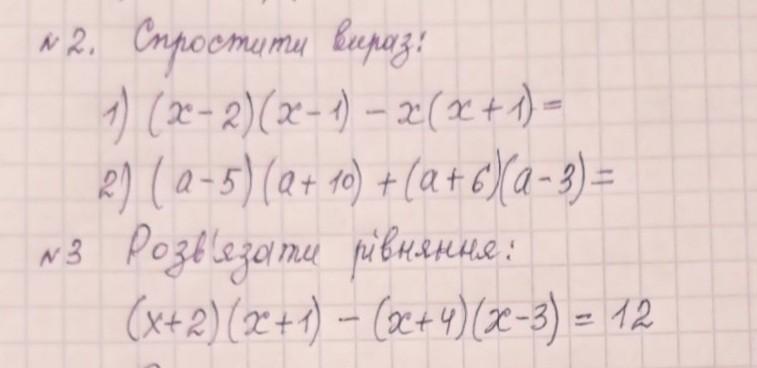 №2. Спростити вираз:
1) (x-2)(x-1) - x(x+1) =
2) (a-5)(a+10) + (a+6)(a-3) =
№3 Розв'язати рівняння:
(x+2)(x+1) - (x+4)(x-3) = 12